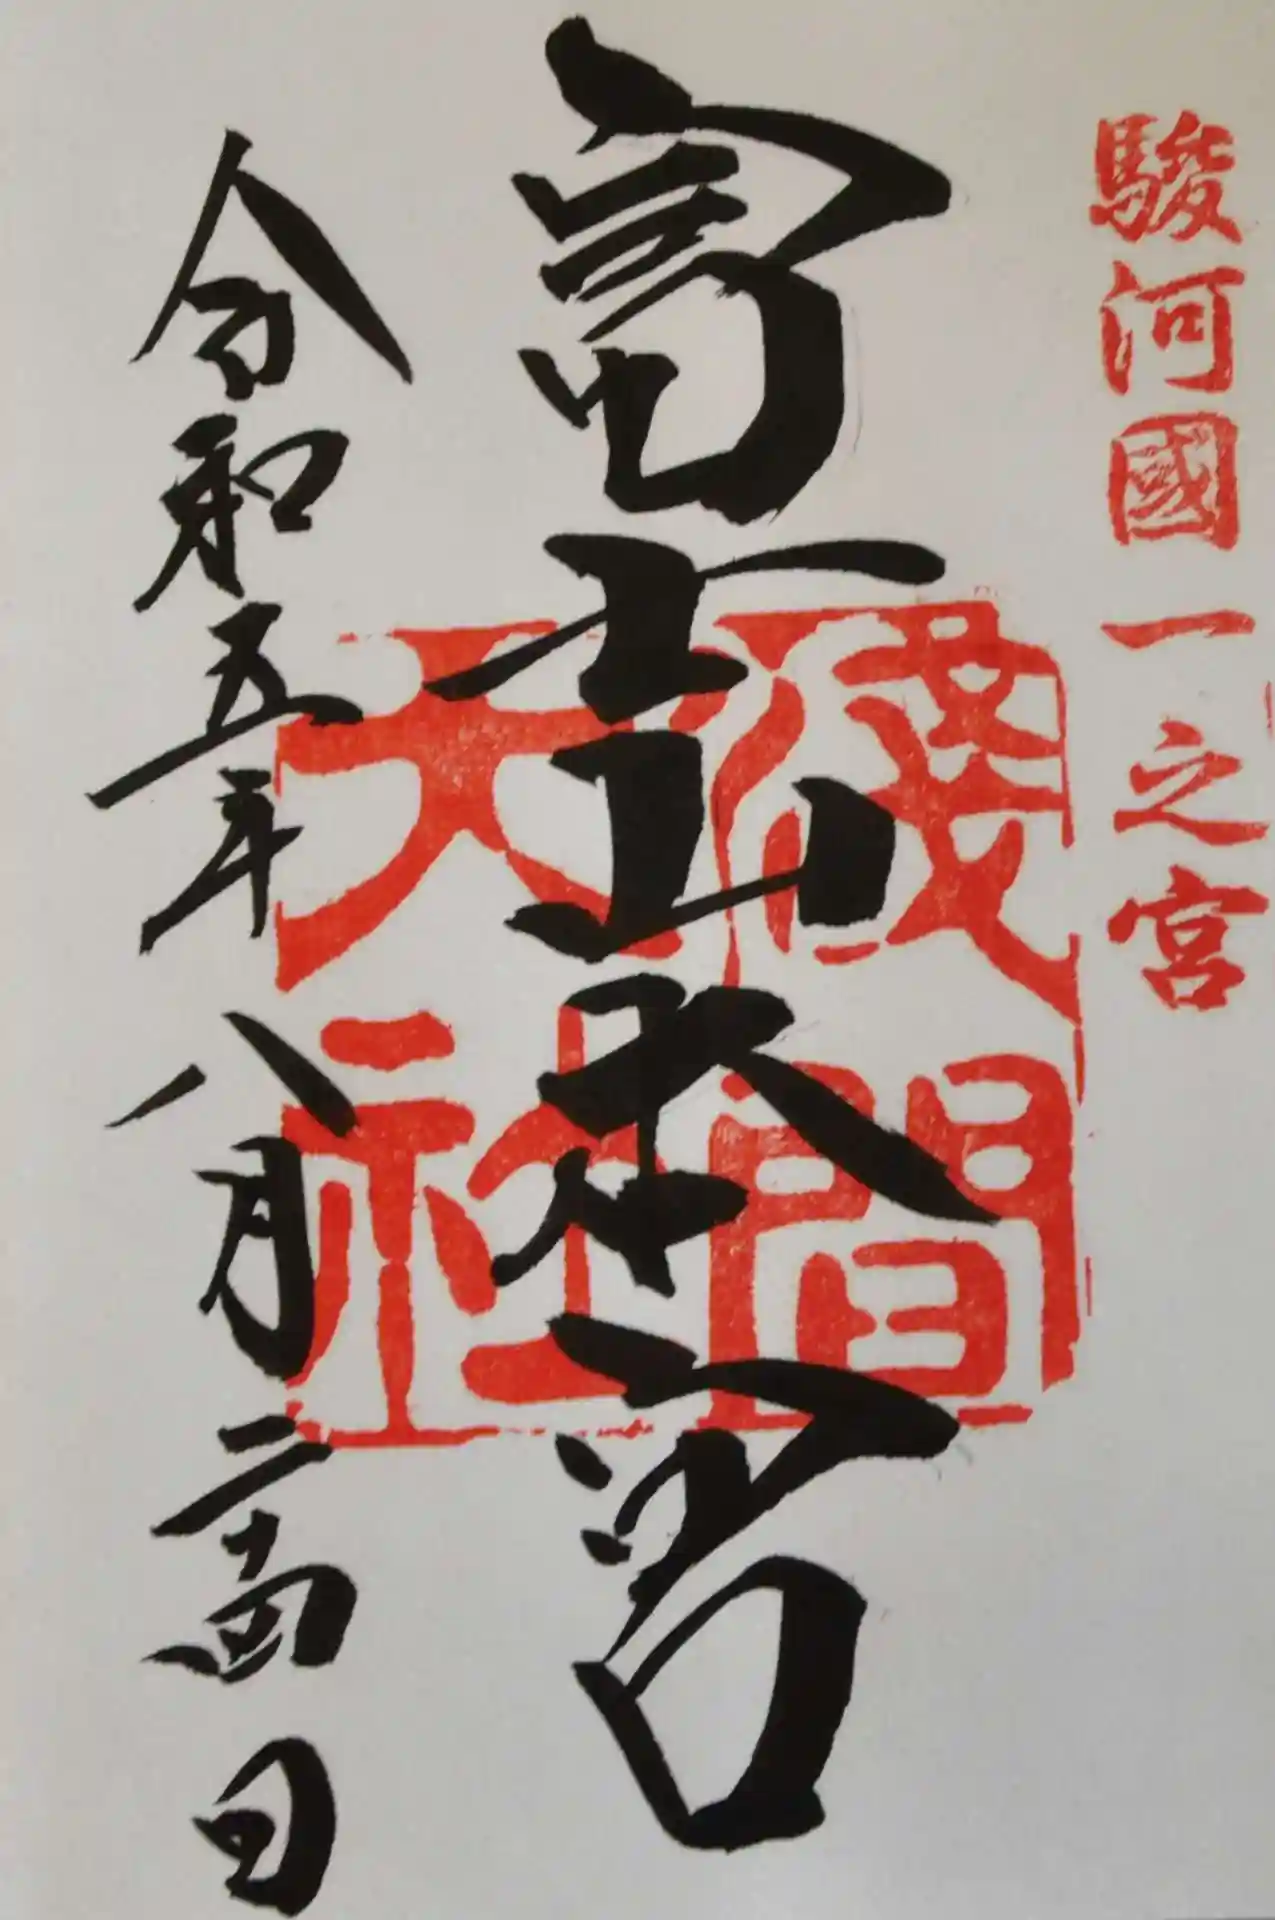 駿河國一之宮
富士山本宮
淺間
大社
令和五年八月二十四日